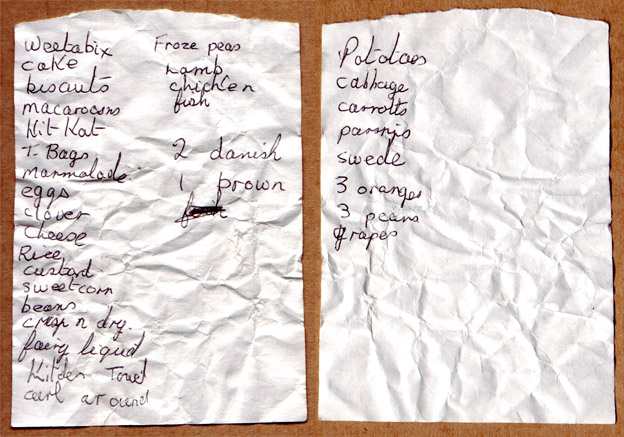 Weetabix
cake
biscuits
macaroons
Kit Kat
T. Bags
marmalade
eggs
clover
cheese
Rice
custard
sweetcorn
beans
crisp n dry.
fairy liquid
Kitden Towel
curl around
Froze peas
Lamb
chicken
fish
2 danish
1 brown
Pototoes
cabbage
carrotts
parsnips
swede
3 oranges
3 pears
grapes